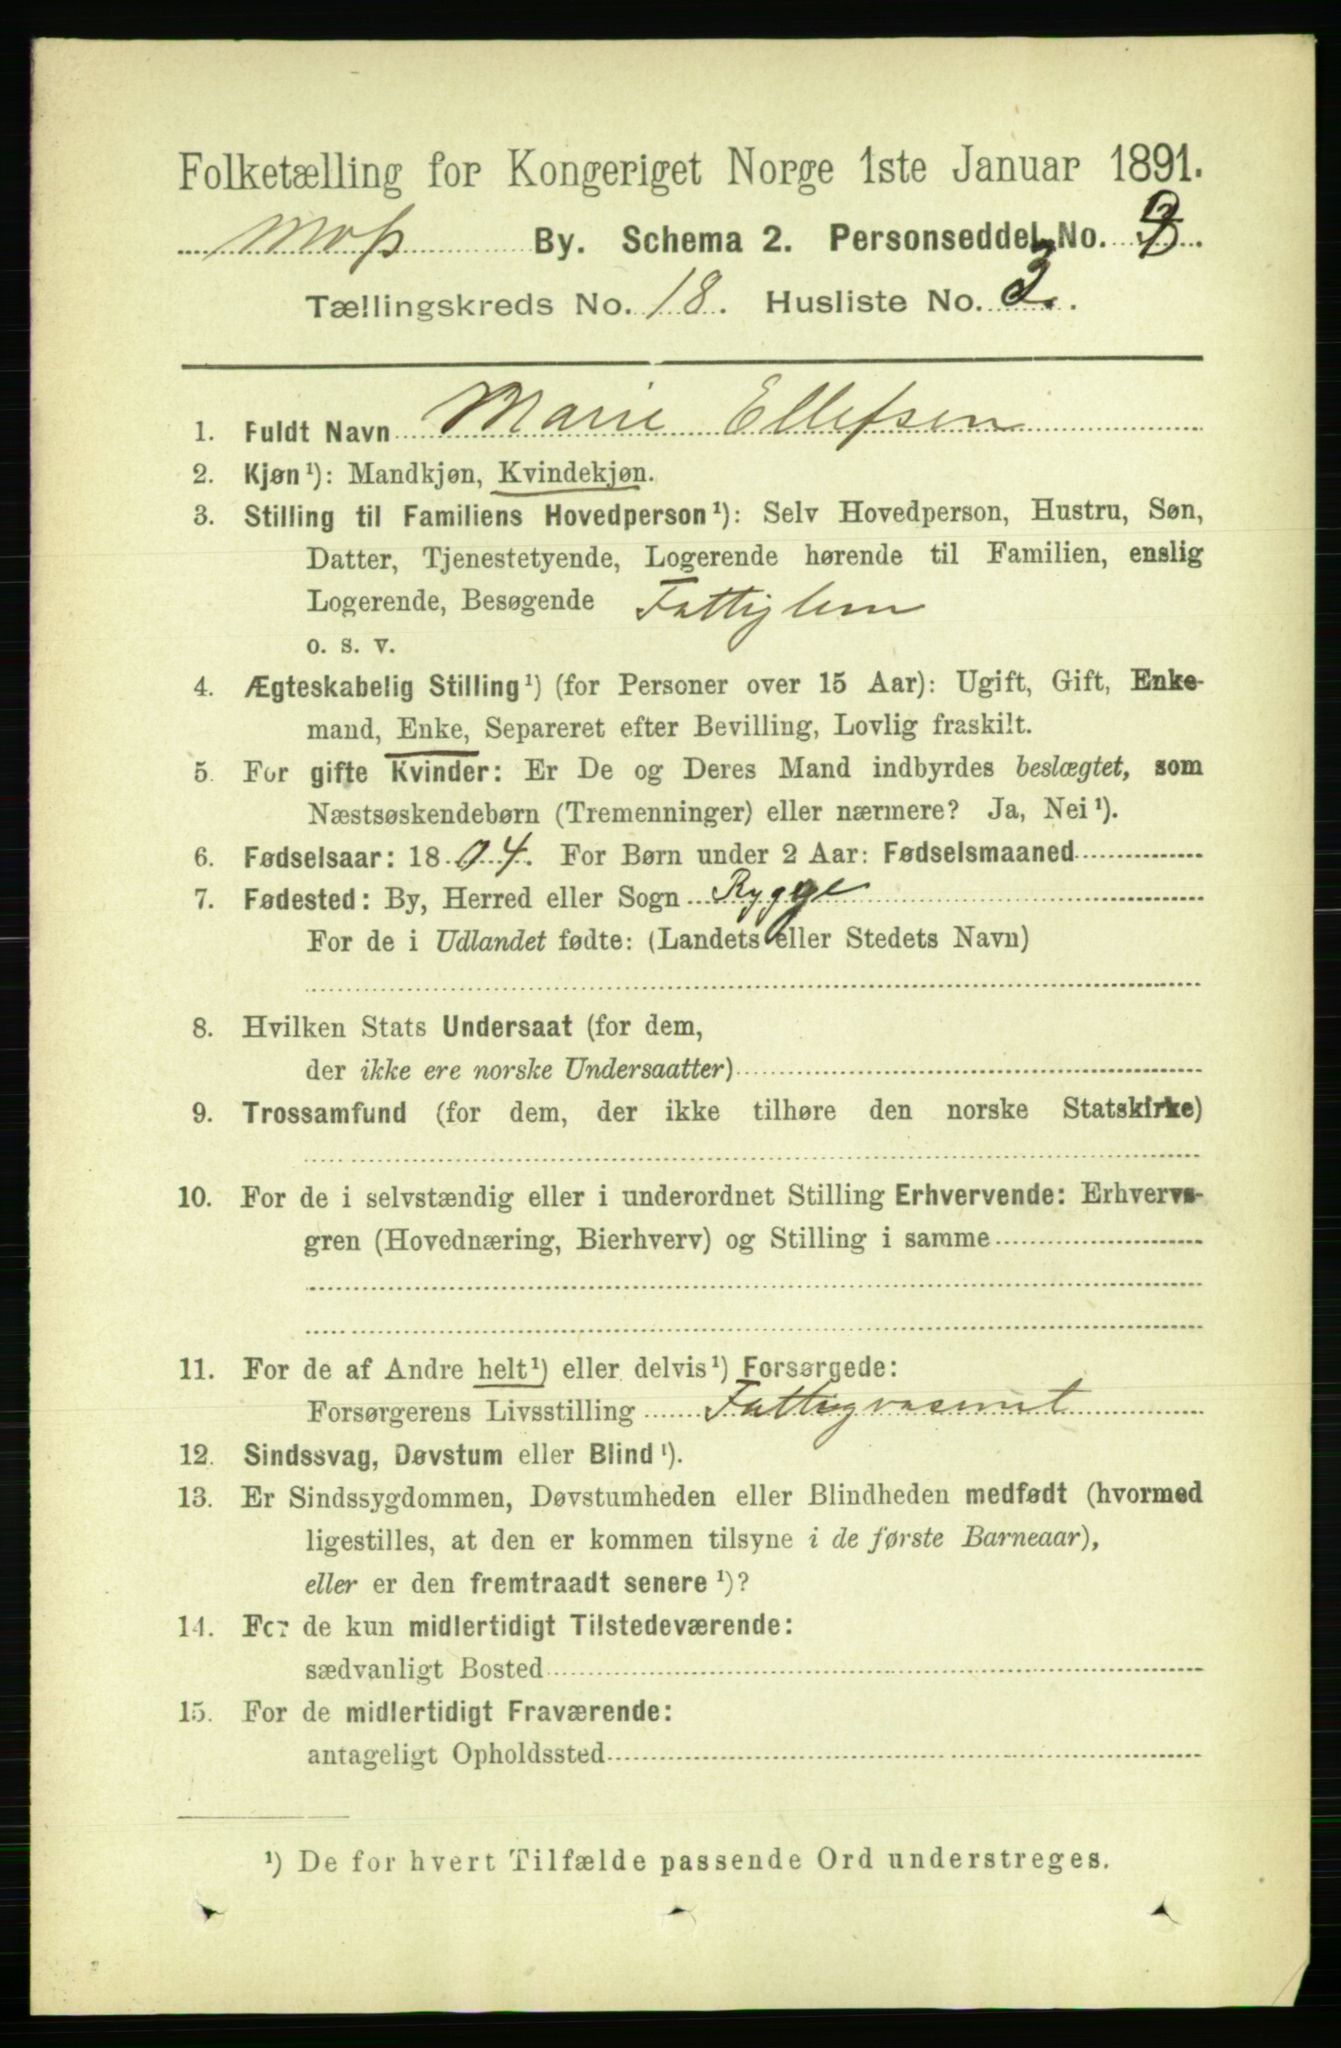 Folketælling for Kongeriget Norge 1ste Januar 1891.
Moss By. Schema 2. Personseddel No.
Tællingskreds No. 18. Husliste No. 3.
1. Fuldt Navn Marie Ellefsen
2. Kjøn¹): Mandkjøn, Kvindekjøn.
3. Stilling til Familiens Hovedperson¹): Selv Hovedperson, Hustru, Søn,
Datter, Tjenestetyende, Logerende hørende til Familien, enslig
Logerende, Besøgende Fattiglem
o. s. v.
4. Ægteskabelig Stilling¹) (for Personer over 15 Aar): Ugift, Gift, Enke-
mand, Enke, Separeret efter Bevilling, Lovlig fraskilt.
5. For gifte Kvinder: Er De og Deres Mand indbyrdes beslægtet, som
Næstsøskendebørn (Tremenninger) eller nærmere? Ja, Nei¹).
6. Fødselsaar: 1804. For Børn under 2 Aar: Fødselsmaaned
7. Fødested: By, Herred eller Sogn Rygge
For de i Udlandet fødte: (Landets eller Stedets Navn)
8. Hvilken Stats Undersaat (for dem,
der ikke ere norske Undersaatter)
9. Trossamfund (for dem, der ikke tilhøre den norske Statskirke)
10. For de i selvstændig eller i underordnet Stilling Erhvervende: Erhvervs-
gren (Hovednæring, Bierhverv) og Stilling i samme
11. For de af Andre helt¹) eller delvis¹) Forsørgede:
Forsørgerens Livsstilling Fattigvæsenet
12. Sindssvag, Døvstum eller Blind¹).
13. Er Sindssygdommen, Døvstumheden eller Blindheden medfødt (hvormed
ligestilles, at den er kommen tilsyne i de første Barneaar),
eller er den fremtraadt senere¹)?
14. For de kun midlertidigt Tilstedeværende:
sædvanligt Bosted
15. For de midlertidigt Fraværende:
antageligt Opholdssted
¹) De for hvert Tilfælde passende Ord understreges.